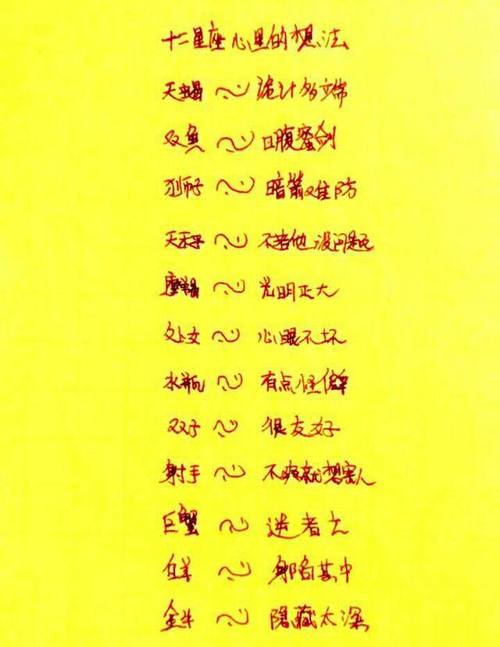 十二星座心里的想法
天蝎～诡计多端
双鱼～口腹蜜剑
狮子～暗箭难防
天秤～不惹他没问题
摩羯～光明正大
处女～心眼不坏
水瓶～有点怪僻
双子～很友好
射手～不爽就想害人
巨蟹～逆者亡
白羊～身陷其中
金牛～隐藏太深